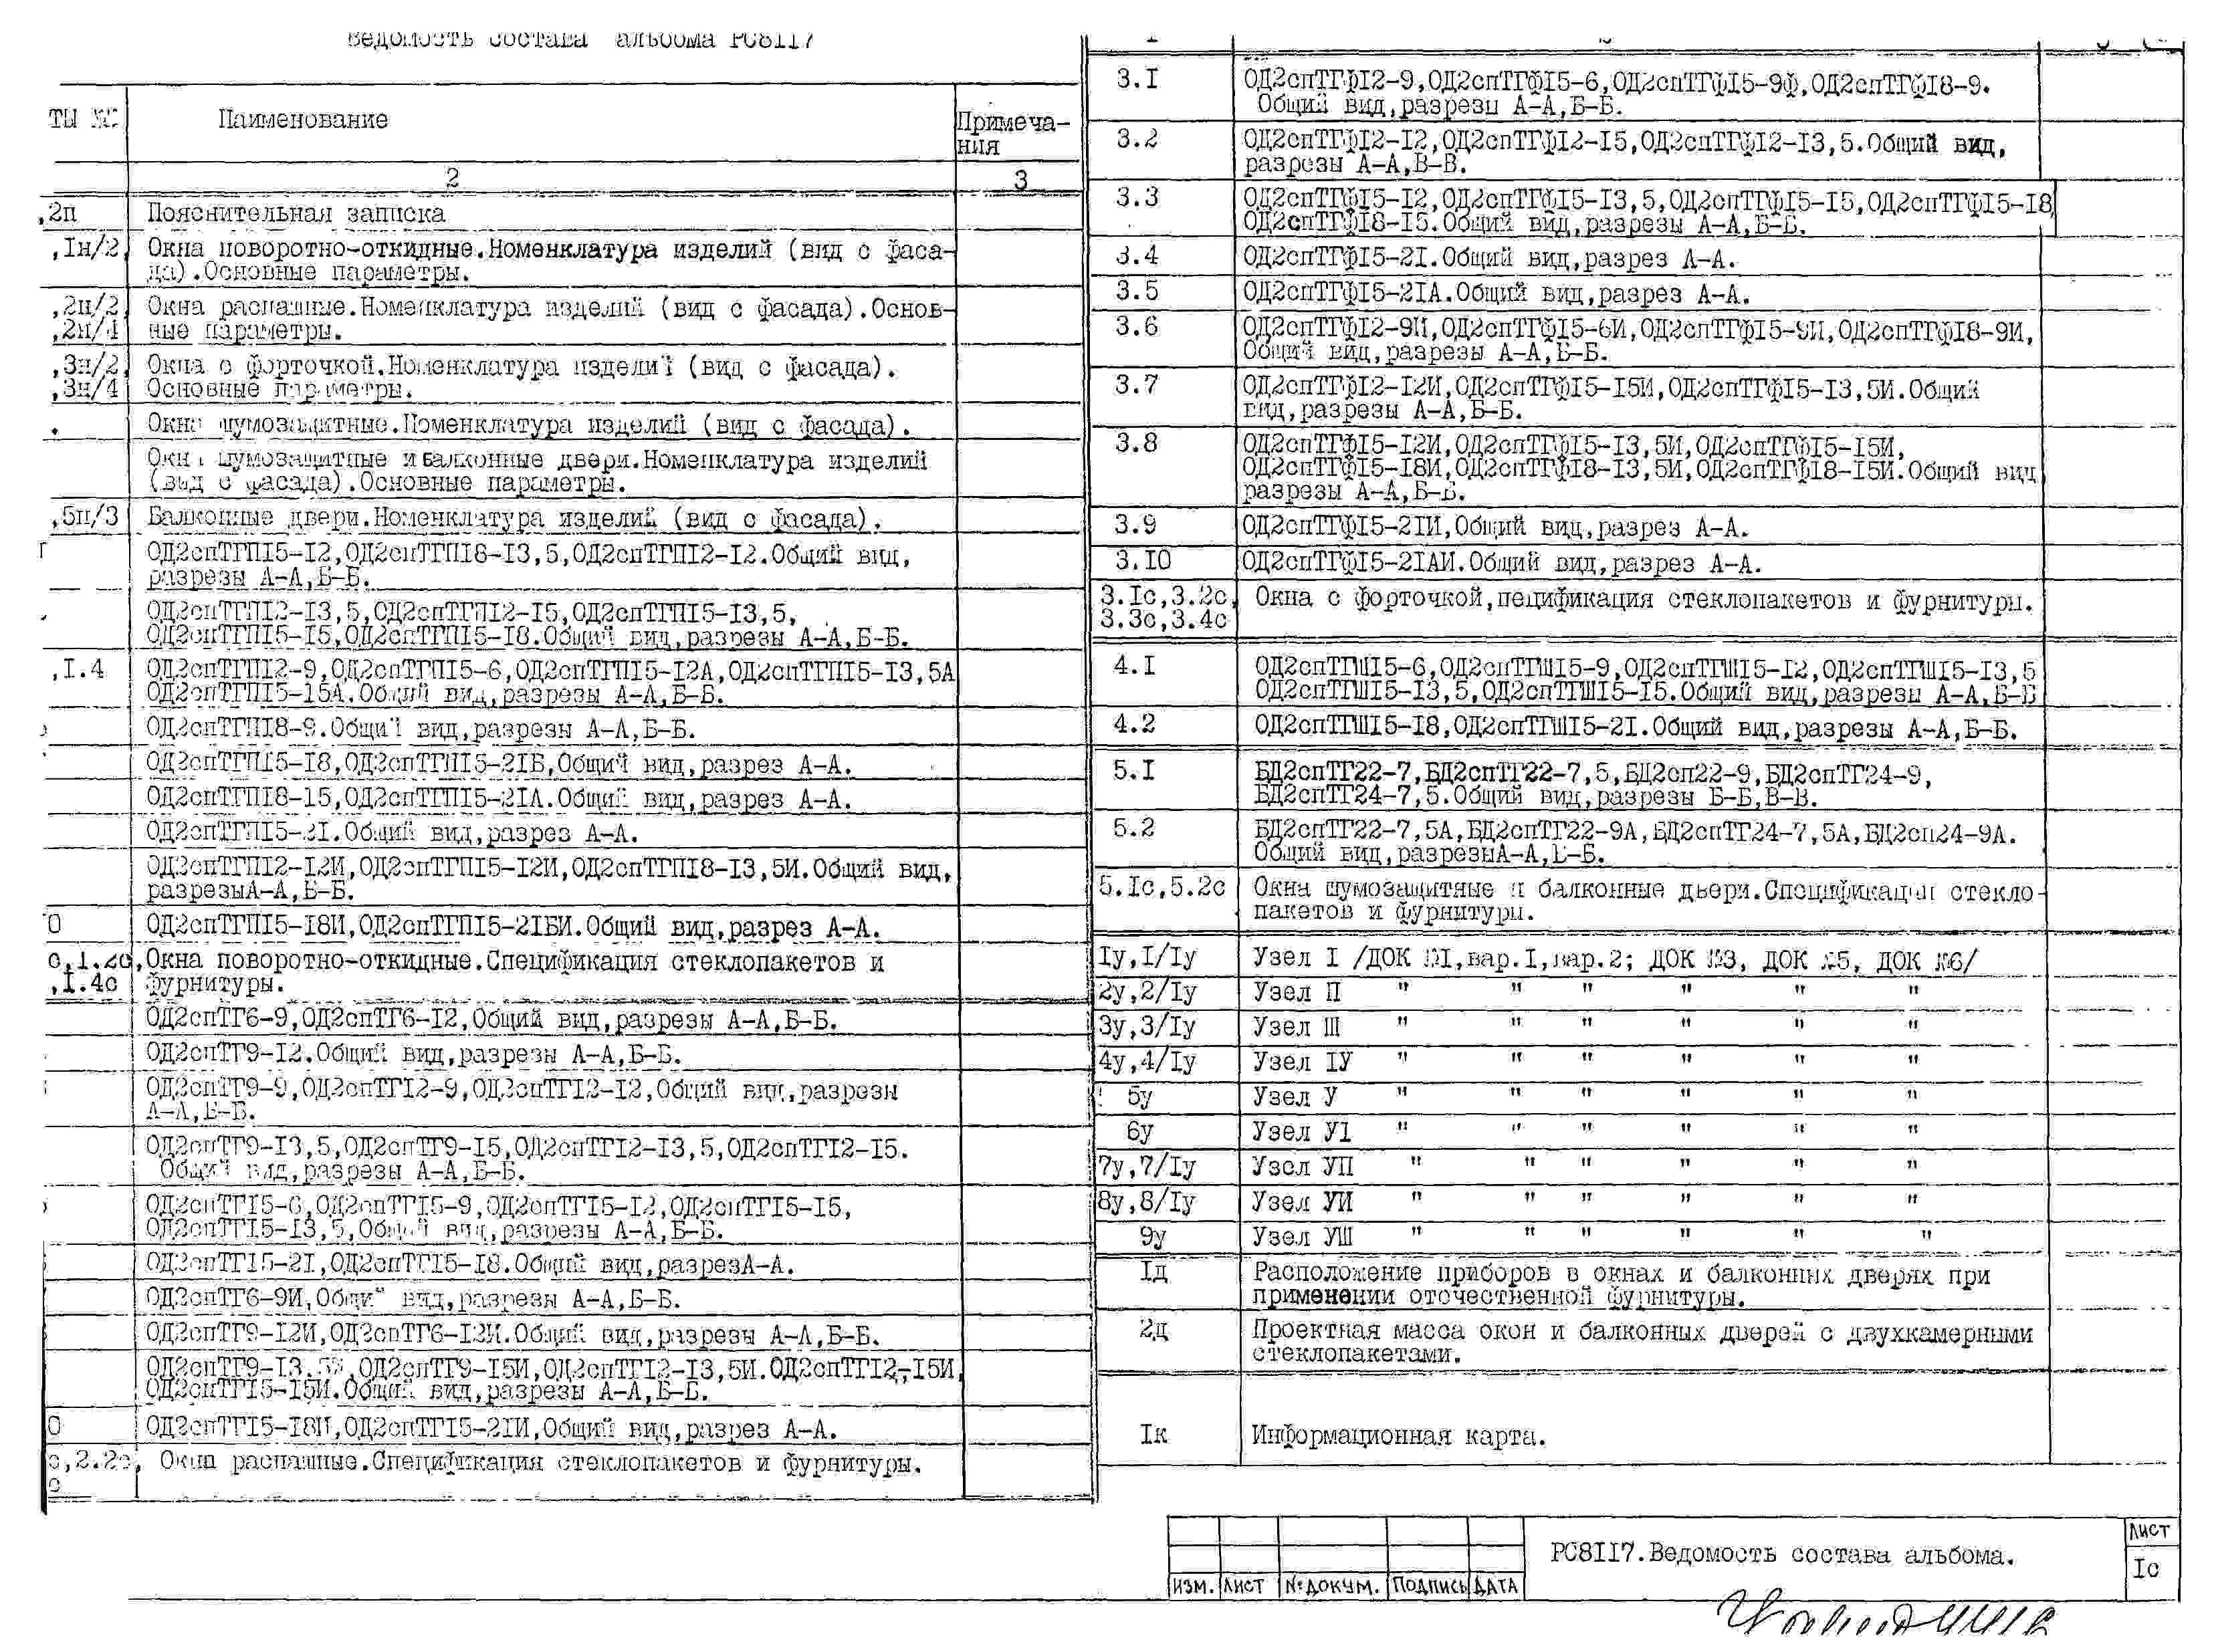 Ведомость состава альбома РС8117
ты №
Наименование
Примеча-
ния
2
3
,2п
Пояснительная записка
,Iн/2,
Окна поворотно-откидные.Номенклатура изделий (вид с фаса-
да).Основные параметры.
,2н/2,
,2н/4
Окна распашные.Номенклатура изделий (вид с фасада).Основ-
ные параметры.
,3н/2,
,3н/4
Окна с форточкой.Номенклатура изделий (вид с фасада).
Основные параметры.
Окна шумозащитные.Номенклатура изделий (вид с фасада).
Окна шумозащитные и балконные двери.Номенклатура изделий
(вид с фасада).Основные параметры.
,5н/3
Балконные двери.Номенклатура изделий (вид с фасада).
ОД2спТГПI5-I2,ОД2спТГПI8-I3,5,ОД2спТГПI2-I2.Общий вид,
разрезы А-А,Б-Б.
ОД2спТГПI2-I3,5,ОД2спТГПI2-I5,ОД2спТГПI5-I3,5,
ОД2спТГПI5-I5,ОД2спТГПI5-I8.Общий вид,разрезы А-А,Б-Б.
,I.4
ОД2спТГПI2-9,ОД2спТГПI5-6,ОД2спТГПI5-I2А,ОД2спТГПI5-I3,5А
ОД2спТГПI5-I5А.Общий вид,разрезы А-А,Б-Б.
ОД2спТГПI8-9.Общий вид,разрезы А-А,Б-Б.
ОД2спТГПI5-I8,ОД2спТГПI5-2IБ,Общий вид,разрез А-А.
ОД2спТГПI8-I5,ОД2спТГПI5-2IА.Общий вид,разрез А-А.
ОД2спТГПI5-2I.Общий вид,разрез А-А.
ОД2спТГПI2-I2И,ОД2спТГПI5-I2И,ОД2спТГПI8-I3,5И.Общий вид,
разрезыА-А,Б-Б.
0
ОД2спТГПI5-I8И,ОД2спТГПI5-2IБИ.Общий вид,разрез А-А.
с,I.2с,
,I.4с
Окна поворотно-откидные.Спецификация стеклопакетов и
фурнитуры.
ОД2спТГ6-9,ОД2спТГ6-I2,Общий вид,разрезы А-А,Б-Б.
ОД2спТГ9-I2.Общий вид,разрезы А-А,Б-Б.
ОД2спТГ9-9,ОД2спТГI2-9,ОД2спТГI2-I2,Общий вид,разрезы
А-А,Б-Б.
ОД2спТГ9-I3,5,ОД2спТГ9-I5,ОД2спТГI2-I3,5,ОД2спТГI2-I5.
Общий вид,разрезы А-А,Б-Б.
ОД2спТГI5-6,ОД2спТГI5-9,ОД2спТГI5-I2,ОД2спТГI5-I5,
ОД2спТГI5-I3,5,Общий вид,разрезы А-А,Б-Б.
ОД2спТГI5-2I,ОД2спТГI5-I8.Общий вид,разрезА-А.
ОД2спТГ6-9И,Общий вид,разрезы А-А,Б-Б.
ОД2спТГ9-I2И,ОД2спТГ6-I2И.Общий вид,разрезы А-А,Б-Б.
ОД2спТГ9-I3,5И,ОД2спТГ9-I5И,ОД2спТГI2-I3,5И.ОД2спТГI2-I5И,
ОД2спТГI5-I5И.Общий вид,разрезы А-А,Б-Б.
0
ОД2спТГI5-I8И,ОД2спТГI5-2IИ,Общий вид,разрез А-А.
с,2.2с,
с
Окна распашные.Спецификация стеклопакетов и фурнитуры.
3.I
ОД2спТГФI2-9,ОД2спТГФI5-6,ОД2спТГФI5-9Ф,ОД2спТГФI8-9.
Общий вид,разрезы А-А,Б-Б.
3.2
ОД2спТГФI2-I2,ОД2спТГФI2-I5,ОД2спТГФI2-I3,5.Общий вид,
разрезы А-А,В-В.
3.3
ОД2спТГФI5-I2,ОД2спТГФI5-I3,5,ОД2спТГФI5-I5,ОД2спТГФI5-I8,
ОД2спТГФI8-I5.Общий вид,разрезы А-А,Б-Б.
3.4
ОД2спТГФI5-2I.Общий вид,разрез А-А.
3.5
ОД2спТГФI5-2IА.Общий вид,разрез А-А.
3.6
ОД2спТГФI2-9И,ОД2спТГФI5-6И,ОД2спТГФI5-9И,ОД2спТГФI8-9И,
Общий вид,разрезы А-А,Б-Б.
3.7
ОД2спТГФI2-I2И,ОД2спТГФI5-I5И,ОД2спТГФI5-I3,5И.Общий
вид,разрезы А-А,Б-Б.
3.8
ОД2спТГФI5-I2И,ОД2спТГФI5-I3,5И,ОД2спТГФI5-I5И,
ОД2спТГФI5-I8И,ОД2спТГФI8-I3,5И,ОД2спТГФI8-I5И.Общий вид
разрезы А-А,Б-Б.
3.9
ОД2спТГФI5-2IИ,Общий вид,разрез А-А.
3.I0
ОД2спТГФI5-2IАИ.Общий вид,разрез А-А.
3.Iс,3.2с,
3.3с,3.4с
Окна с форточкой,пецификация стеклопакетов и фурнитуры.
4.I
ОД2спТГШI5-6,ОД2спТГШI5-9,ОД2спТГШI5-I2,ОД2спТГШI5-I3,5
ОД2спТГШI5-I3,5,ОД2спТГШI5-I5.Общий вид,разрезы А-А,Б-Б
4.2
ОД2спТГШI5-I8,ОД2спТГШI5-2I.Общий вид,разрезы А-А,Б-Б.
5.I
БД2спТГ22-7,БД2спТГ22-7,5,БД2сп22-9,БД2спТГ24-9,
БД2спТГ24-7,5.Общий вид,разрезы Б-Б,В-В.
5.2
БД2спТГ22-7,5А,БД2спТГ22-9А,БД2спТГ24-7,5А,БД2сп24-9А.
Общий вид,разрезыА-А,Б-Б.
5.Iс,5.2с
Окна шумозащитные и балконные двери.Спецификации стекло-
пакетов и фурнитуры.
Iу,I/Iу
Узел I /ДОК №I,вар.I,вар.2; ДОК №3, ДОК №5, ДОК №6/
2у,2/Iу
Узел П " " " " " "
3у,3/Iу
Узел Ш " " " " " "
4у,4/Iу
Узел IУ " " " " " "
5у
Узел У " " " " " "
6у
Узел У1 " " " " " "
7у,7/Iу
Узел УП " " " " " "
8у,8/Iу
Узел УИ " " " " " "
9у
Узел УШ " " " " " "
Iд
Расположение приборов в окнах и балконных дверях при
применении отечественной фурнитуры.
2д
Проектная масса окон и балконных дверей с двухкамерными
стеклопакетами.
Iк
Информационная карта.
РС8II7.Ведомость состава альбома.
ЛИСТ
Iс
ИЗМ. ЛИСТ №ДОКУМ. ПОДПИСЬ ДАТА